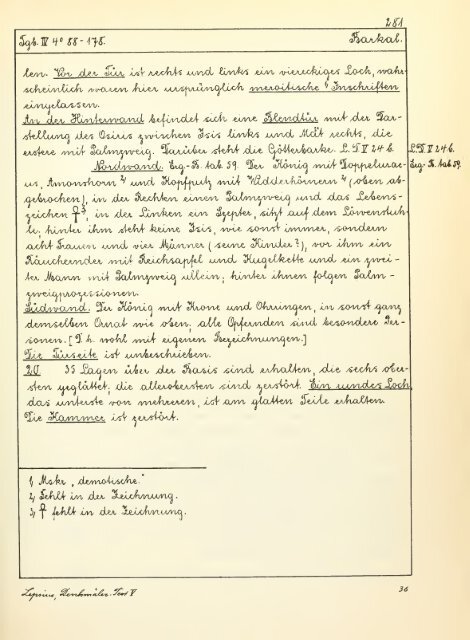 281
Tgb. IV 4° 88-178.
Barkal.
len. Vor der Tür ist rechts und links ein viereckiges Loch, wahr-
scheinlich waren hier ursprünglich meroitische ¹⁾ Inschriften
eingelassen.
In der Hinterwand befindet sich eine Blendtür mit der Dar-
stellung des Osiris zwischen Isis links und Maat rechts, die
erstere mit Palmzweig. Darüber steht die Götterbarke. L.D. V 24 b.
L.D. V 24 b.
Nordwand. Erg-B. tab. 59. Der König mit Doppelurae-
Erg-B. tab 59.
us, Amonshorn ²⁾ und Kopfputz mit Widderhörnern ²⁾ (oben ab-
gebrochen), in der Rechten einen Palmzweig und das Lebens-
zeichen ☥ ³⁾, in der Linken ein Szepter, sitzt auf dem Löwenstuh-
le; hinter ihm steht keine Isis, wie sonst immer, sondern
acht Frauen und vier Männer (seine Kinder?), vor ihm ein
Räuchernder mit Reichsapfel und Kugelkette und ein zwei-
ter Mann mit Palmzweig allein; hinter ihnen folgen Palm-
zweigprozessionen.
Südwand. Der König mit Krone und Ohrringen, in sonst ganz
demselben Ornat wie oben, alle Opfernden sind besondere Per-
sonen. [D. h. wohl mit eigenen Bezeichnungen.]
Die Türseite ist unbeschrieben.
20 35 Lagen über der Basis sind erhalten, die sechs ober-
sten geglättet, die allerobersten sind zerstört. Ein rundes Loch,
das unterste von mehreren, ist am glatten Teile erhalten.
Die Kammer ist zerstört.
1) Mskr. „demotische."
2) Fehlt in der Zeichnung.
3) ☥ fehlt in der Zeichnung.
Lepsius, Denkmäler. Text V
36